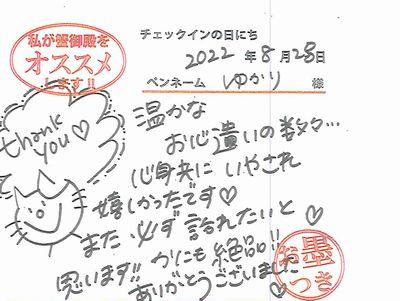 私が蟹御殿を
オススメ
します!!
チェックインの日にち
2022年8月28日
ペンネーム ゆかり 様
thank
you♡
温かな
お心遣いの数々…
心身共にいやされ
嬉しかったです♡
また必ず訪れたいと
思います!! かにも絶品!!♡
ありがとうございました♡
お墨
つき